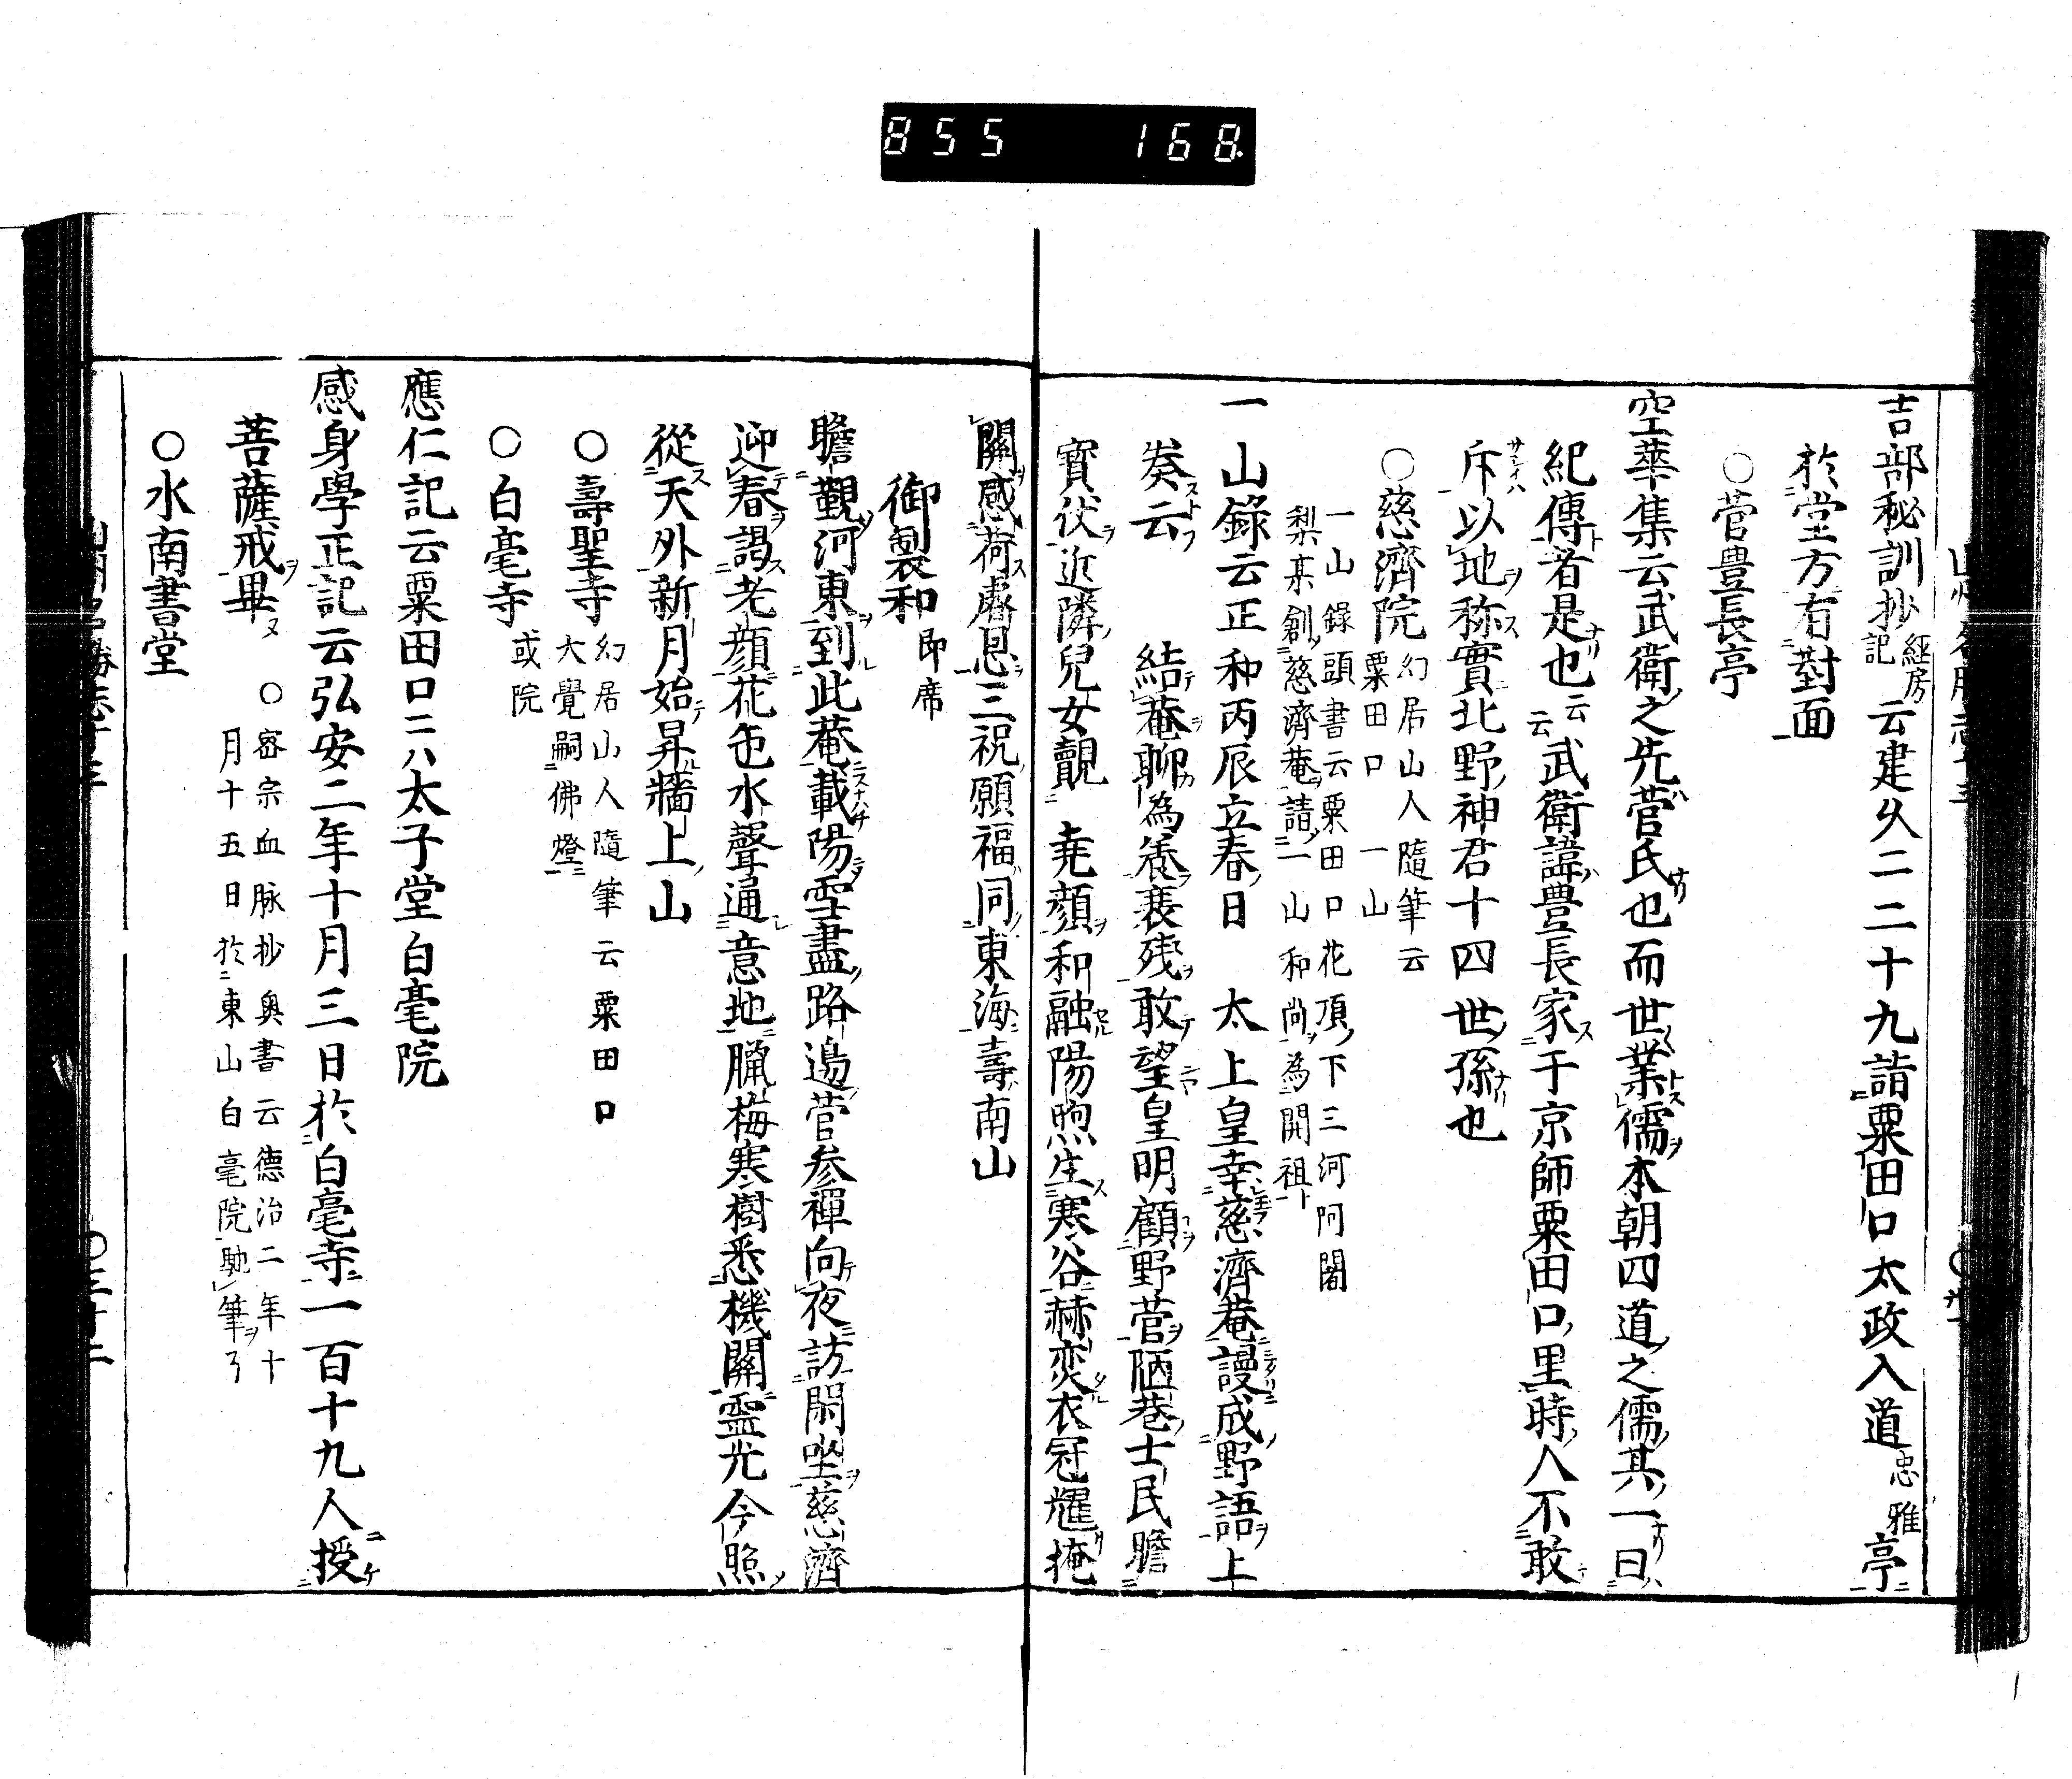 855 168
吉部秘訓抄経房記云建久二二十九詣粟田口太政入道忠雅亭
於堂方有對面
○菅豊長亭
空華集云武衛之先菅氏也而世業儒本朝四道之儒其一曰
紀傳者是也云云武衛諱豊長家于京師粟田口里時人不敢
斥以地称實北野神君十四世孫也
○慈濟院幻居山人隨筆云粟田口一山
一山錄頭書云粟田口花頂下三河阿闍
梨某創慈濟菴請一山和尚為開祖
一山錄云正和丙辰立春日 太上皇幸慈濟菴謾成野語上
奏云 結菴聊為養衰残敢望皇明顧野菅陋巷士民瞻
寳伏近隣兒女覿 堯顔和融陽煦生寒谷赫奕衣冠耀掩
關感荷睿恩三祝願福同東海壽南山
御製和即席
瞻覿河東到此菴載陽雪盡路邊菅参禪向夜訪閑坐慈濟
迎春謁老顔花色水聲通意地臘梅寒樹悉機關靈光今照
從天外新月始昇牆上山
○壽聖寺幻居山人隨筆云粟田口
大覺嗣佛燈
○白毫寺或院
應仁記云粟田口二八太子堂白毫院
感身學正記云弘安二年十月三日於白毫寺一百十九人授
菩薩戒畢又 ○密宗血脉抄奥書云德治二年十
月十五日於東山白毫院馳筆了
○水南書堂